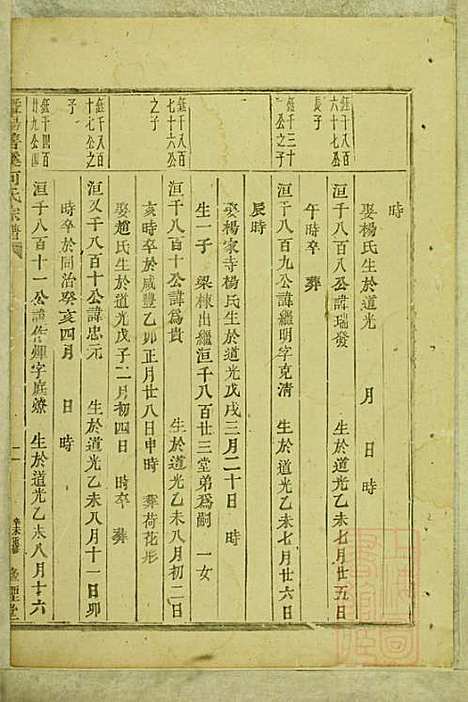 時
娶楊氏生於道光 月 日 時
鈺千八百
六十七公
長子
洹千八百八公諱瑞發 生於道光乙未七月廿五日
午時卒 葬
鈺千三十
一公之子
洹千八百九公諱繼明字克清 生於道光乙未七月廿六日
辰時
娶楊家寺楊氏生於道光戊戌三月二十日 時
生一子 梁棟出繼洹千八百廿三堂弟為嗣 一女
鈺千八百
七十六公
之子
洹千八百十公諱為貴 生於道光乙未八月初二日
亥時卒於咸豐乙卯正月廿八日申時 葬荷花形
娶趙氏生於道光戊子二月初四日 時卒 葬
鈺千八百
十七公之
子
洹又千八百十公諱忠元 生於道光乙未八月十一日卯
時卒於同治癸亥四月 日 時
鈺千四百
廿九公四
洹千八百十一公諱 輝字庭燎 生於道光乙未八月十六
何氏宗譜